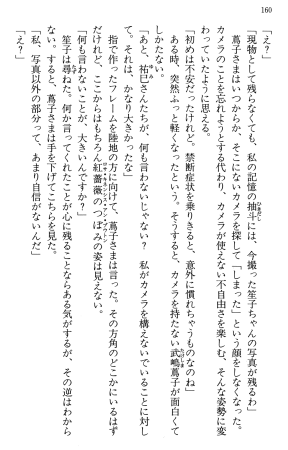 160
「え？」
「現物として残らなくても、私の記憶の抽斗には、今撮った笙子ちゃんの写真が残るわ」
蔦子さまはいつからか、そこにないカメラを探して「しまった」という顔をしなくなった。
カメラのことを忘れようとする代わり、カメラが使えない不自由さを楽しむ、そんな姿勢に変
わっていたように思える。
「初めは不安だったけれど。禁断症状を乗りきると、意外に慣れちゃうものなのね」
ある時、突然ふっと軽くなったという。そうすると、カメラを持たない武嶋蔦子が面白くて
しかたない。
「あと、祐巳さんたちが、何も言わないじゃない？　私がカメラを構えないでいることに対し
て。それは、かなり大きかったな」
指で作ったフレームを陸地の方に向けて、蔦子さまは言った。その方角のどこかにいるはず
だけれど、ここからはもちろん紅薔薇のつぼみの姿は見えない。
「何も言わないことが、大きいんですか？」
笙子は尋ねた。何か言ってくれたことが心に残るならある気がするが、その逆はわから
ない。すると、蔦子さまは手を下げてこちらを見た。
「私、写真以外の部分って、あまり自信がないんだ」
「え？」